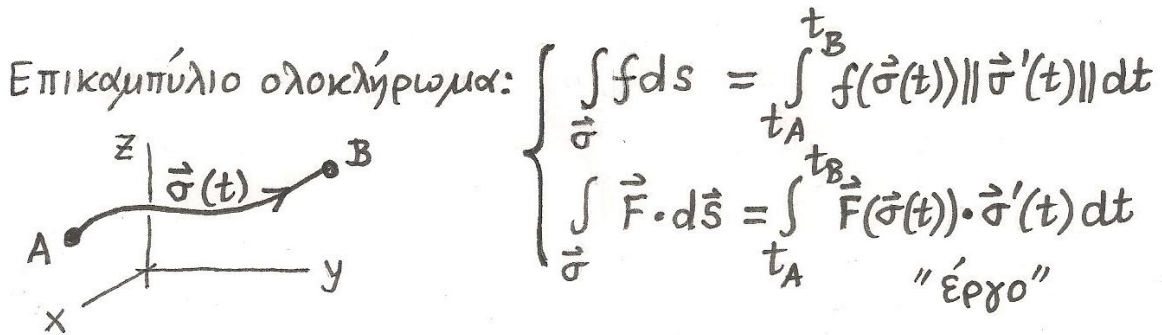 Επικαμπύλιο ολοκλήρωμα: { ∫_σ⃗ f ds = ∫_{t_A}^{t_B} f(σ⃗(t)) ‖σ⃗'(t)‖ dt
∫_σ⃗ F⃗ • ds⃗ = ∫_{t_A}^{t_B} F⃗(σ⃗(t)) • σ⃗'(t) dt
"έργο"
z
B
σ⃗(t)
A
y
x